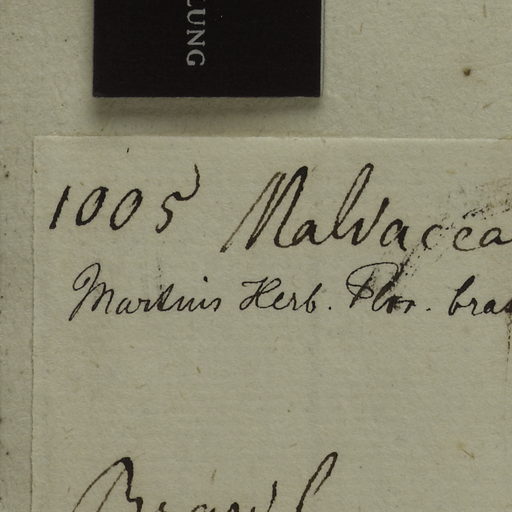 LUNG
1005 Malvacea
Martius Herb. Flor. bras
Brasil